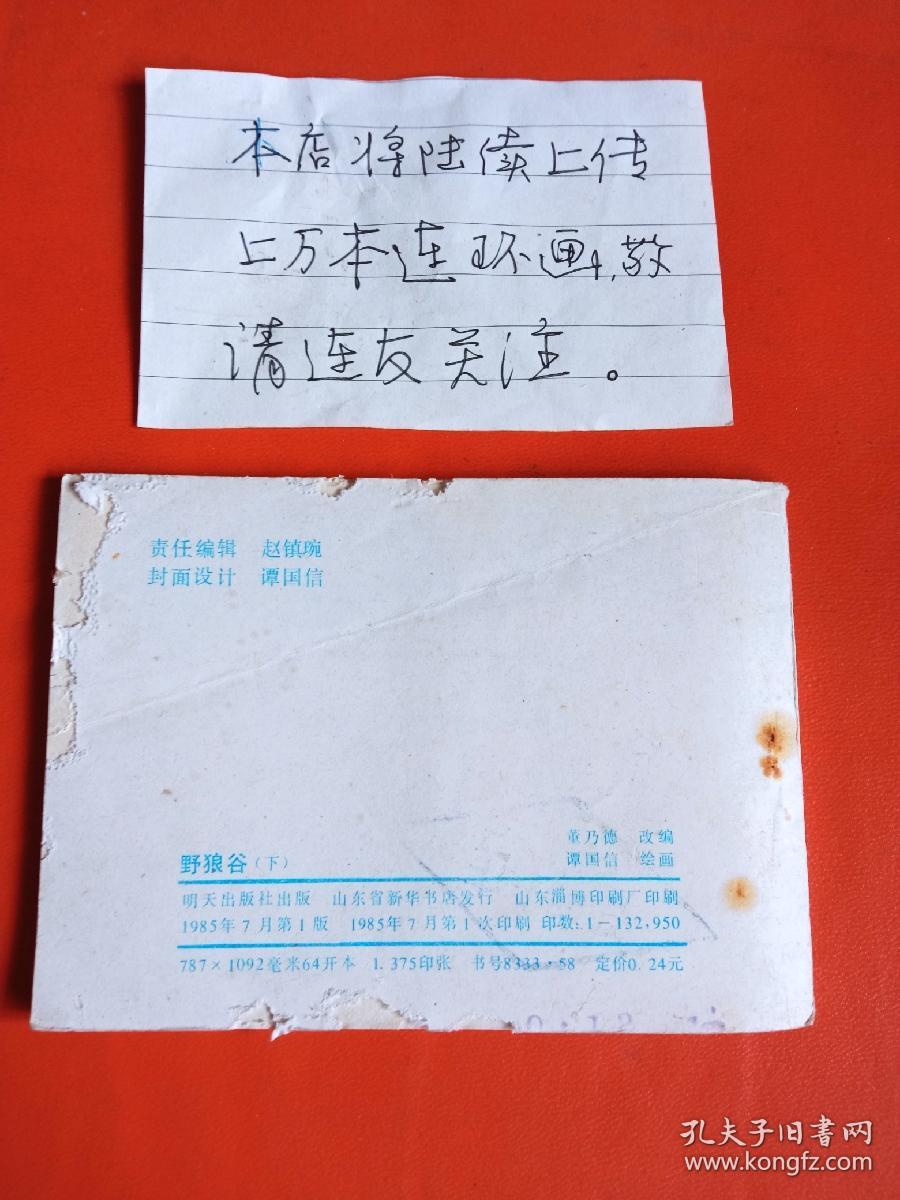 本店将陆续上传
上万本连环画,敬
请连友关注。
责任编辑 赵镇琬
封面设计 谭国信
董乃德 改编
野狼谷(下) 谭国信 绘画
明天出版社出版 山东省新华书店发行 山东淄博印刷厂印刷
1985年7月第1版 1985年7月第1次印刷 印数:1—132,950
787×1092毫米64开本 1.375印张 书号8333·58 定价0.24元
孔夫子旧书网
www.kongfz.com